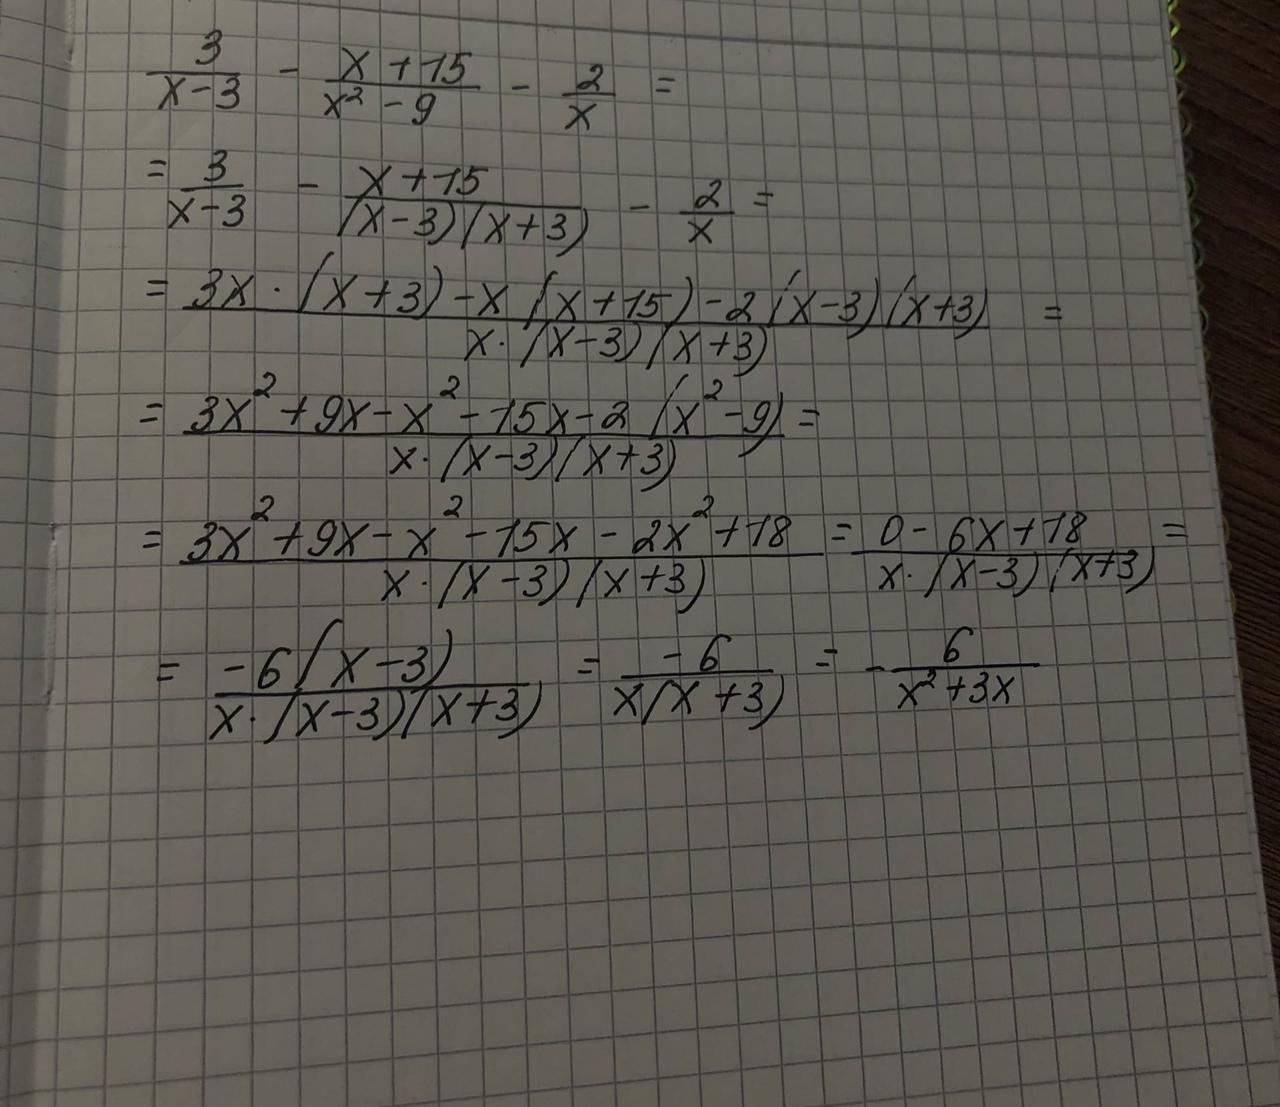 3/(x-3) - (x+15)/(x² - 9) - 2/x =
= 3/(x-3) - (x+15)/((x-3)(x+3)) - 2/x =
= (3x·(x+3) - x(x+15) - 2(x-3)(x+3))/(x·(x-3)(x+3)) =
= (3x² + 9x - x² - 15x - 2(x² - 9))/(x·(x-3)(x+3)) =
= (3x² + 9x - x² - 15x - 2x² + 18)/(x·(x-3)(x+3)) = (0 - 6x + 18)/(x·(x-3)(x+3)) =
= (-6(x-3))/(x·(x-3)(x+3)) = (-6)/(x(x+3)) = - 6/(x² + 3x)